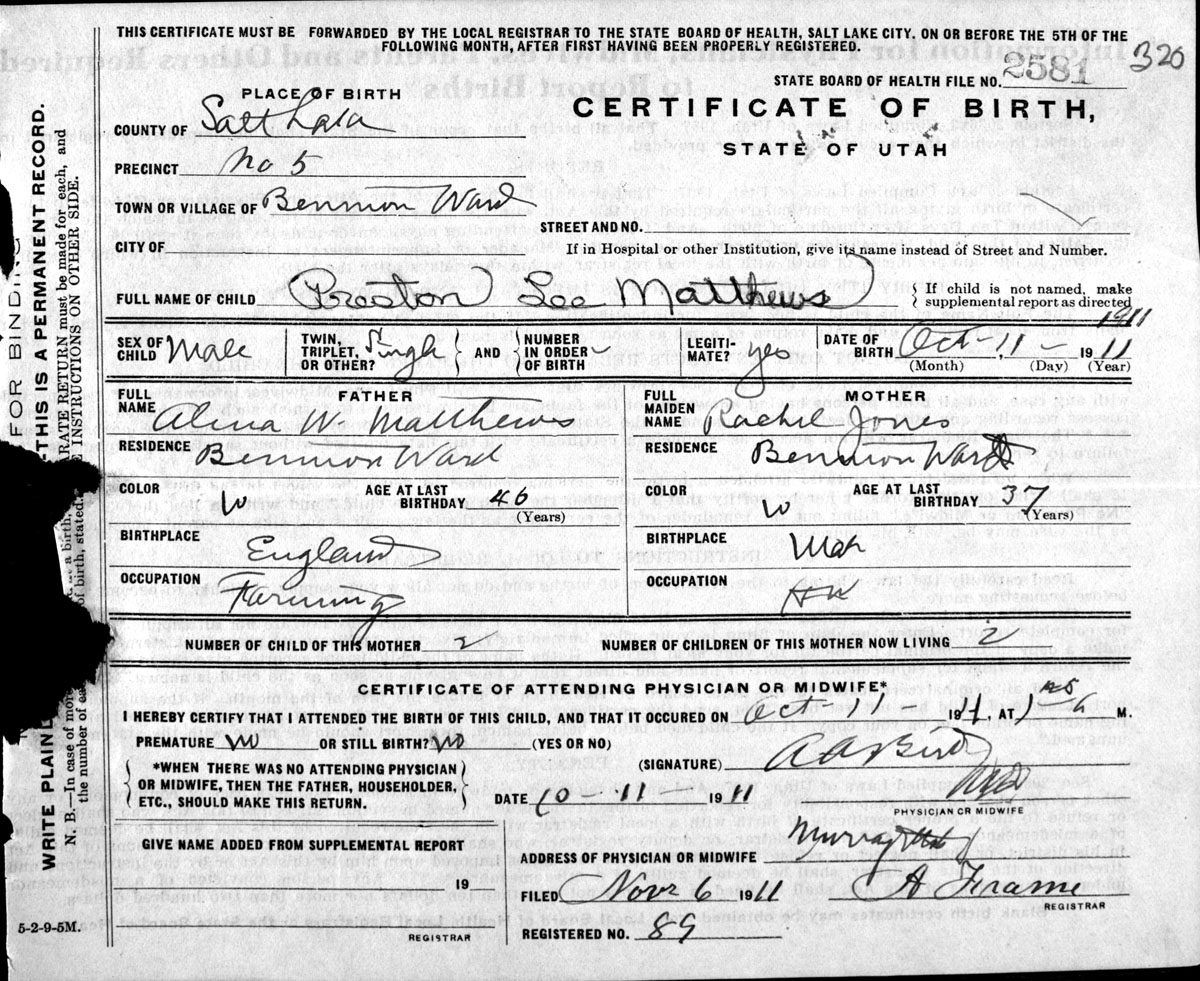 THIS CERTIFICATE MUST BE FORWARDED BY THE LOCAL REGISTRAR TO THE STATE BOARD OF HEALTH, SALT LAKE CITY. ON OR BEFORE THE 5TH OF THE
FOLLOWING MONTH, AFTER FIRST HAVING BEEN PROPERLY REGISTERED.
320
STATE BOARD OF HEALTH FILE NO. 2581
PLACE OF BIRTH
CERTIFICATE OF BIRTH,
STATE OF UTAH
COUNTY OF Salt Lake
PRECINCT No 5
TOWN OR VILLAGE OF Bennion Ward
STREET AND NO.
CITY OF
If in Hospital or other Institution, give its name instead of Street and Number.
FULL NAME OF CHILD Preston Lee Matthews
If child is not named, make
supplemental report as directed
1911
SEX OF CHILD Male
TWIN, TRIPLET, OR OTHER? Single
AND NUMBER IN ORDER OF BIRTH
LEGITI- MATE? yes
DATE OF BIRTH Oct - 11 - 1911
(Month) (Day) (Year)
FATHER
FULL NAME W. Matthews
RESIDENCE Bennion Ward
COLOR W
AGE AT LAST BIRTHDAY 46
(Years)
BIRTHPLACE England
OCCUPATION Farming
MOTHER
FULL MAIDEN NAME Rachel Jones
RESIDENCE Bennion Ward
COLOR W
AGE AT LAST BIRTHDAY 37
(Years)
BIRTHPLACE Utah
OCCUPATION HW
NUMBER OF CHILD OF THIS MOTHER 2
NUMBER OF CHILDREN OF THIS MOTHER NOW LIVING 2
CERTIFICATE OF ATTENDING PHYSICIAN OR MIDWIFE*
I HEREBY CERTIFY THAT I ATTENDED THE BIRTH OF THIS CHILD, AND THAT IT OCCURED ON Oct-11 1911, AT A M.
PREMATURE no OR STILL BIRTH? no (YES OR NO)
(SIGNATURE)
*WHEN THERE WAS NO ATTENDING PHYSICIAN
OR MIDWIFE, THEN THE FATHER, HOUSEHOLDER,
ETC., SHOULD MAKE THIS RETURN.
DATE 10 - 11 1911
PHYSICIAN OR MIDWIFE
GIVE NAME ADDED FROM SUPPLEMENTAL REPORT
19
REGISTRAR
ADDRESS OF PHYSICIAN OR MIDWIFE Murray Utah
FILED Nov 6 1911
A Frame
REGISTRAR
REGISTERED NO. 89
5-2-9-5M.
OR BINDING
THIS IS A PERMANENT RECORD.
ARATE RETURN must be made for each, and
INSTRUCTIONS ON OTHER SIDE.
WRITE PLAINL
N. B.—In case of more
the number of ea
at a birth,
of birth, stated.